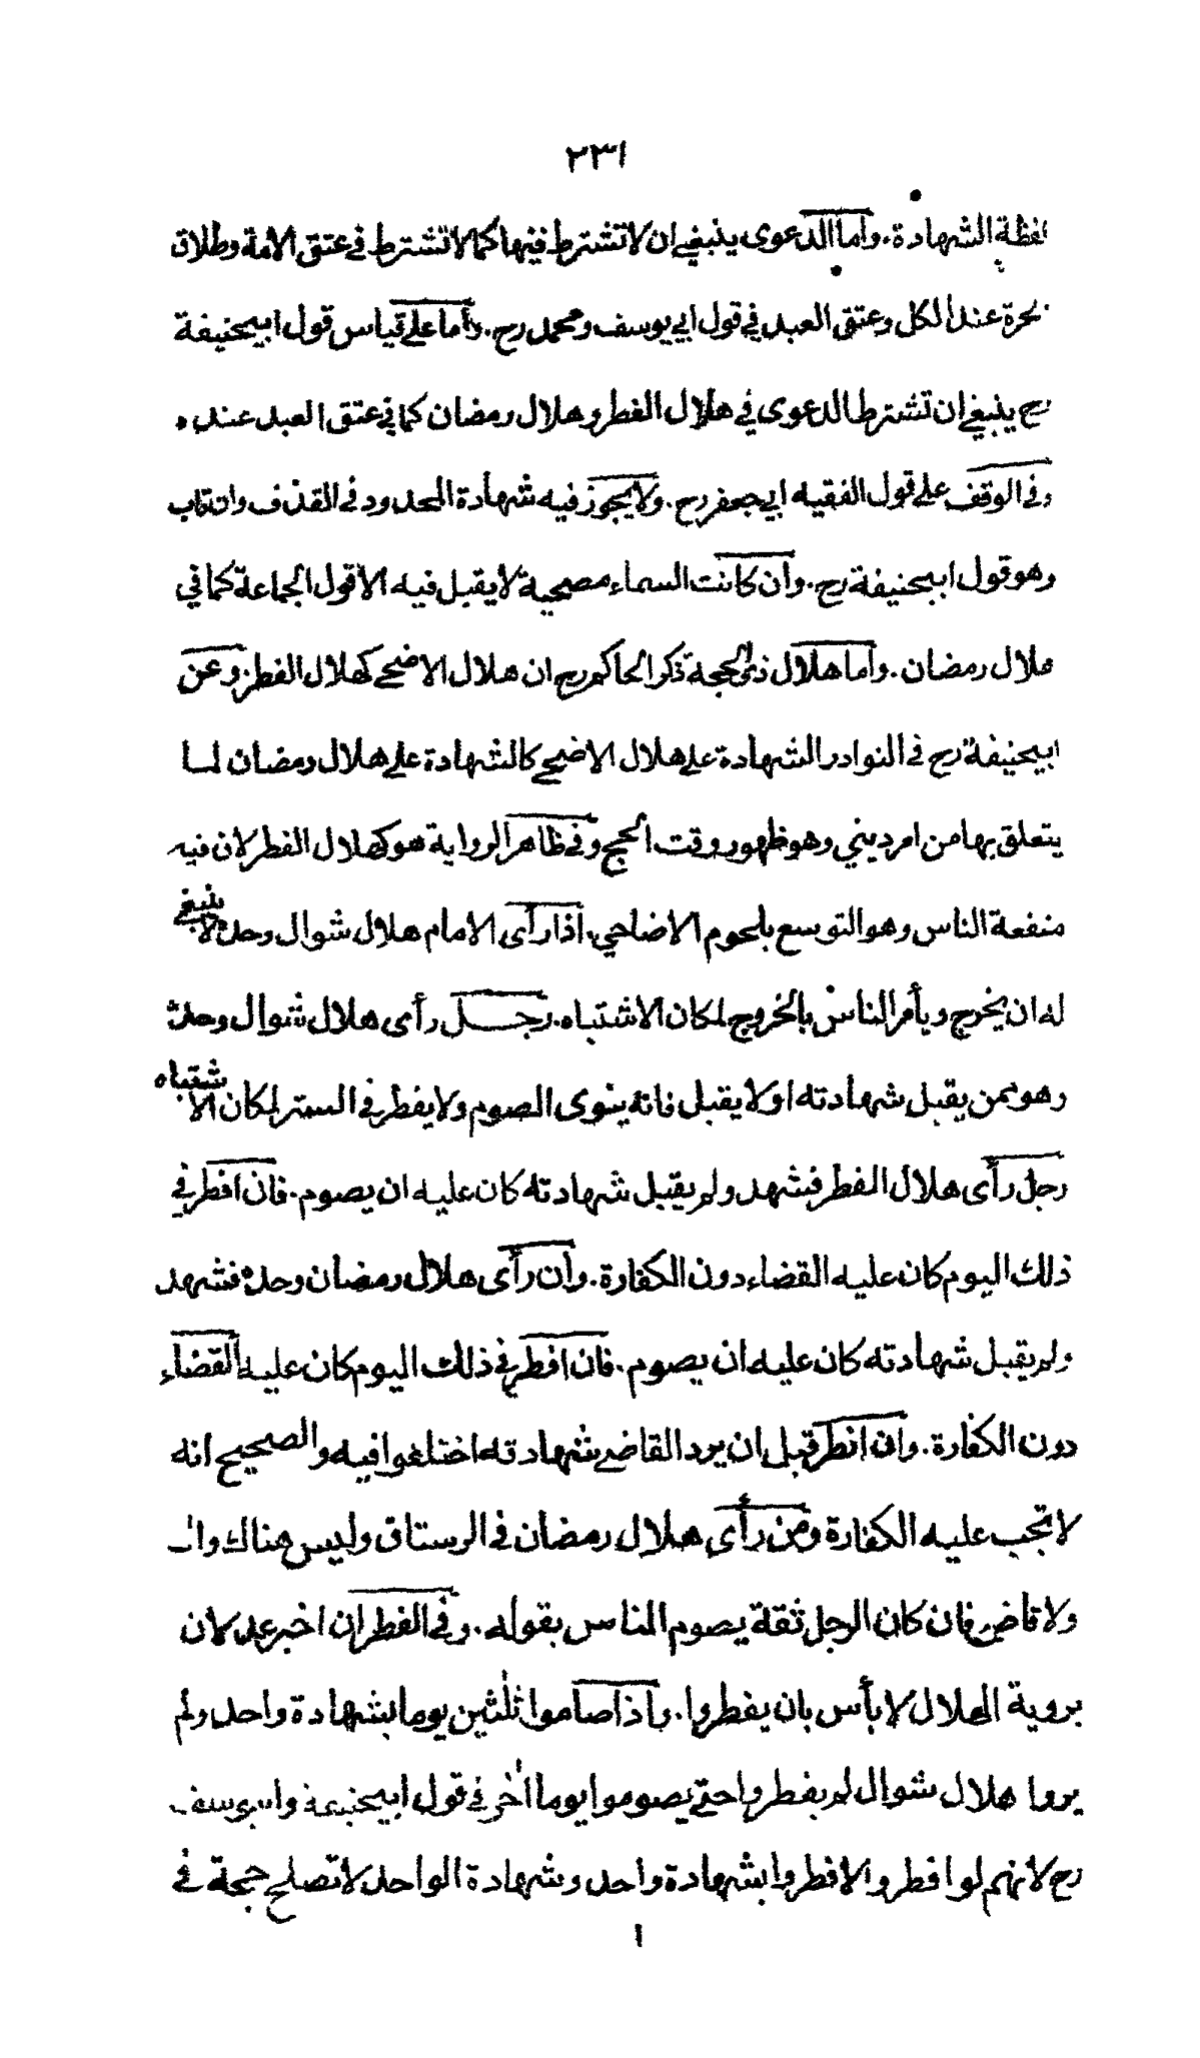 ٢٣١
لفظة الشهادة. واما الدعوى ينبغي ان لا تشترط فيها كما لا تشترط في عتق الامة وطلاق
الحرة عند الكل وعتق العبد في قول ابي يوسف ومحمد رح. واما على قياس قول ابيحنيفة
رح ينبغي ان تشترط الدعوى في هلال الفطر وهلال رمضان كما في عتق العبد عنده
وفي الوقف على قول الفقيه ابي جعفر رح. ولا يجوز فيه شهادة المحدود في القذف وان تاب
وهو قول ابيحنيفة رح. وان كانت السماء مصحية لا يقبل فيه الا قول الجماعة كما في
هلال رمضان. واما هلال ذي الحجة ذكر الحاكم رح ان هلال الاضحى كهلال الفطر. وعن
ابيحنيفة رح في النوادر الشهادة على هلال الاضحى كالشهادة على هلال رمضان لما
يتعلق بها من امر ديني وهو ظهور وقت الحج وفي ظاهر الرواية هو كهلال الفطر لان فيه
منفعة الناس وهو التوسع بلحوم الاضاحي. اذا رأى الامام هلال شوال وحده لا ينبغي
له ان يخرج ويأمر الناس بالخروج لمكان الاشتباه. رجل رأى هلال شوال وحده
وهو ممن يقبل شهادته او لا يقبل فانه ينوى الصوم ولا يفطر في الستر لمكان الاشتباه
رجل رأى هلال الفطر فشهد ولم يقبل شهادته كان عليه ان يصوم. فان افطر في
ذلك اليوم كان عليه القضاء دون الكفارة. وان رأى هلال رمضان وحده فشهد
ولم يقبل شهادته كان عليه ان يصوم. فان افطر في ذلك اليوم كان عليه القضاء
دون الكفارة. وان افطر قبل ان يرد القاضي شهادته اختلفوا فيه والصحيح انه
لا تجب عليه الكفارة ومن رأى هلال رمضان في الرستاق وليس هناك وال
ولا قاض فان كان الرجل ثقة يصوم الناس بقوله. وفي الفطر ان اخبر عدلان
بروية الهلال لا بأس بان يفطروا. واذا صاموا ثلثين يوما بشهادة واحد ولم
يروا هلال شوال لم يفطروا حتى يصوموا يوما اخر في قول ابيحنيفة وابي يوسف
رح لانهم لو افطروا لافطروا بشهادة واحد وشهادة الواحد لا تصلح حجة في
ا